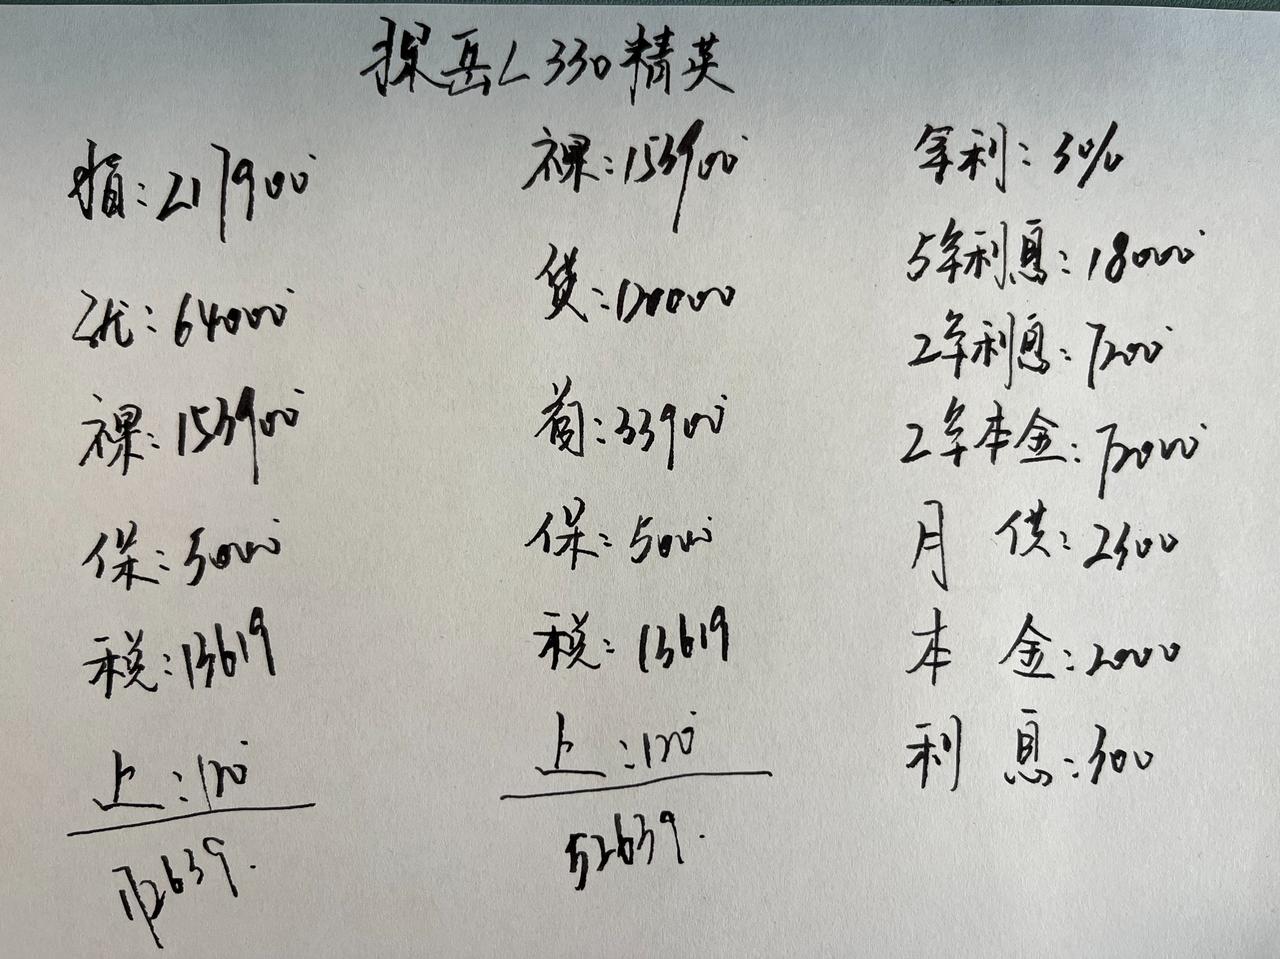 探岳L 330精英
指：217900
优：64000
裸：153900
保：5000
税：13619
上：120
172639.
裸：153900
贷：120000
首：33900
保：5000
税：13619
上：120
52639.
年利：3%
5年利息：18000
2年利息：7200
2年本金：72000
月 供：2300
本 金：2000
利 息：300